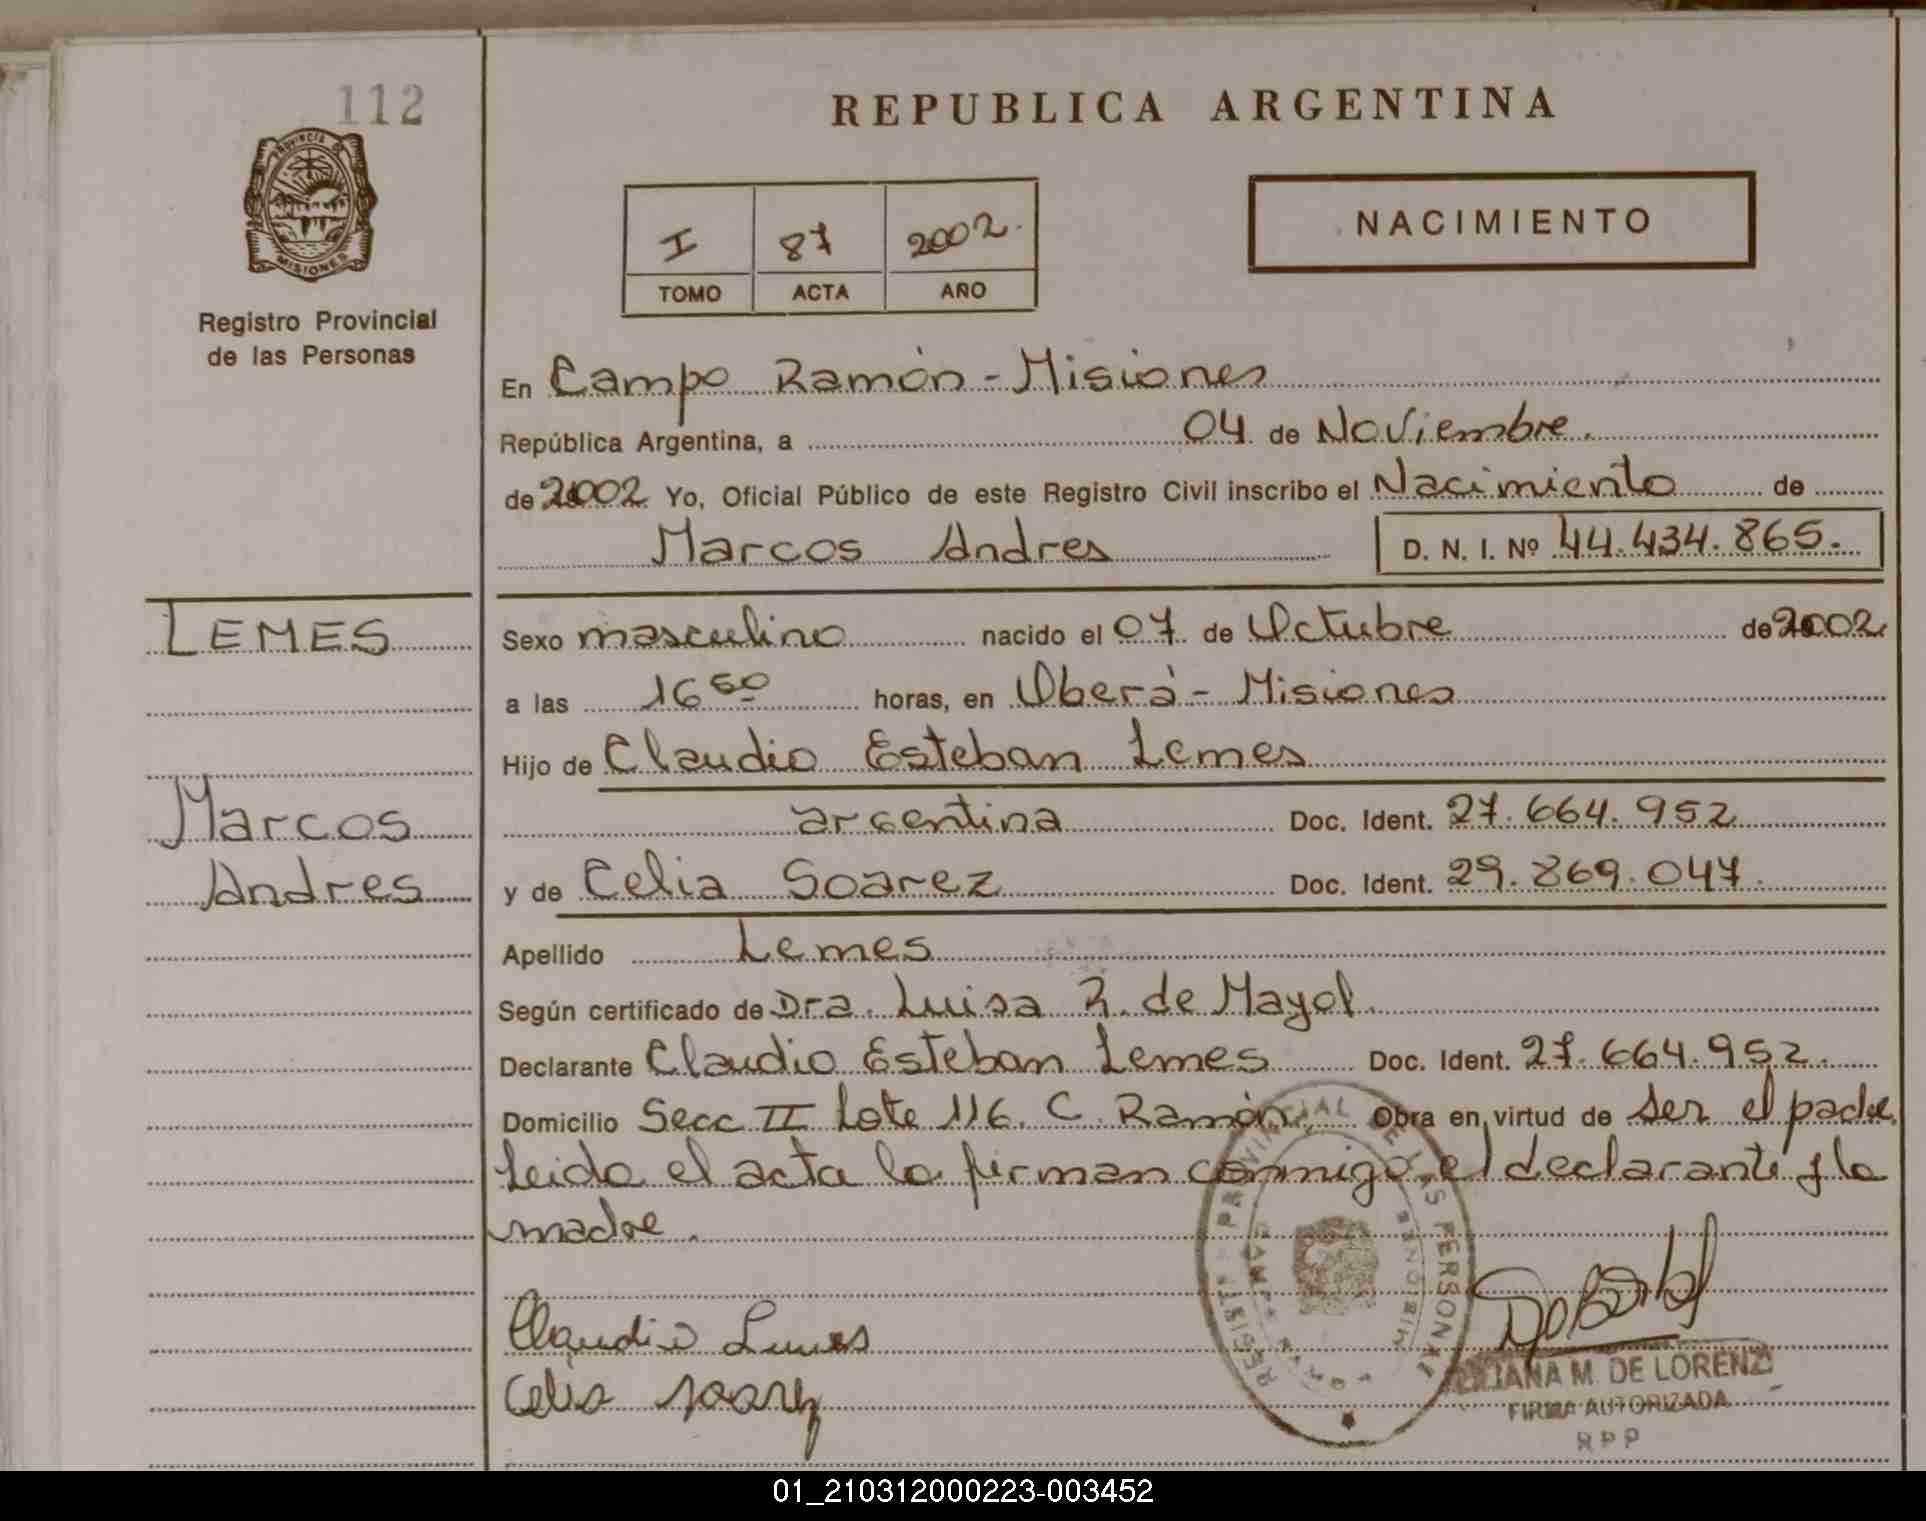 112
PROVINCIA DE
MISIONES
Registro Provincial
de las Personas
REPUBLICA ARGENTINA
I 87 2002.
TOMO ACTA AÑO
NACIMIENTO
En Campo Ramón - Misiones
República Argentina, a 04 de Noviembre.
de 2002 Yo, Oficial Público de este Registro Civil inscribo el Nacimiento de
Marcos Andres D. N. I. Nº 44.434.865.
LEMES
Marcos
Andres
Sexo masculino nacido el 07 de Octubre de 2002
a las 16 50 horas, en Oberá - Misiones
Hijo de Claudio Esteban Lemes
argentina Doc. Ident. 27.664.952
y de Celia Soarez Doc. Ident. 29.869.047.
Apellido Lemes
Según certificado de Dra. Luisa R. de Mayol.
Declarante Claudio Esteban Lemes Doc. Ident. 27.664.952.
Domicilio Secc II Lote 116. C. Ramón. Obra en virtud de ser el padre.
Leida el acta la firman conmigo el declarante y la
madre.
Claudio Lemes
Celia Soarez
REGISTRO PROVINCIAL DE LAS PERSONAS
CAMPO RAMON MISIONES
LILIANA M. DE LORENZI
FIRMA AUTORIZADA
R P P
01_210312000223-003452